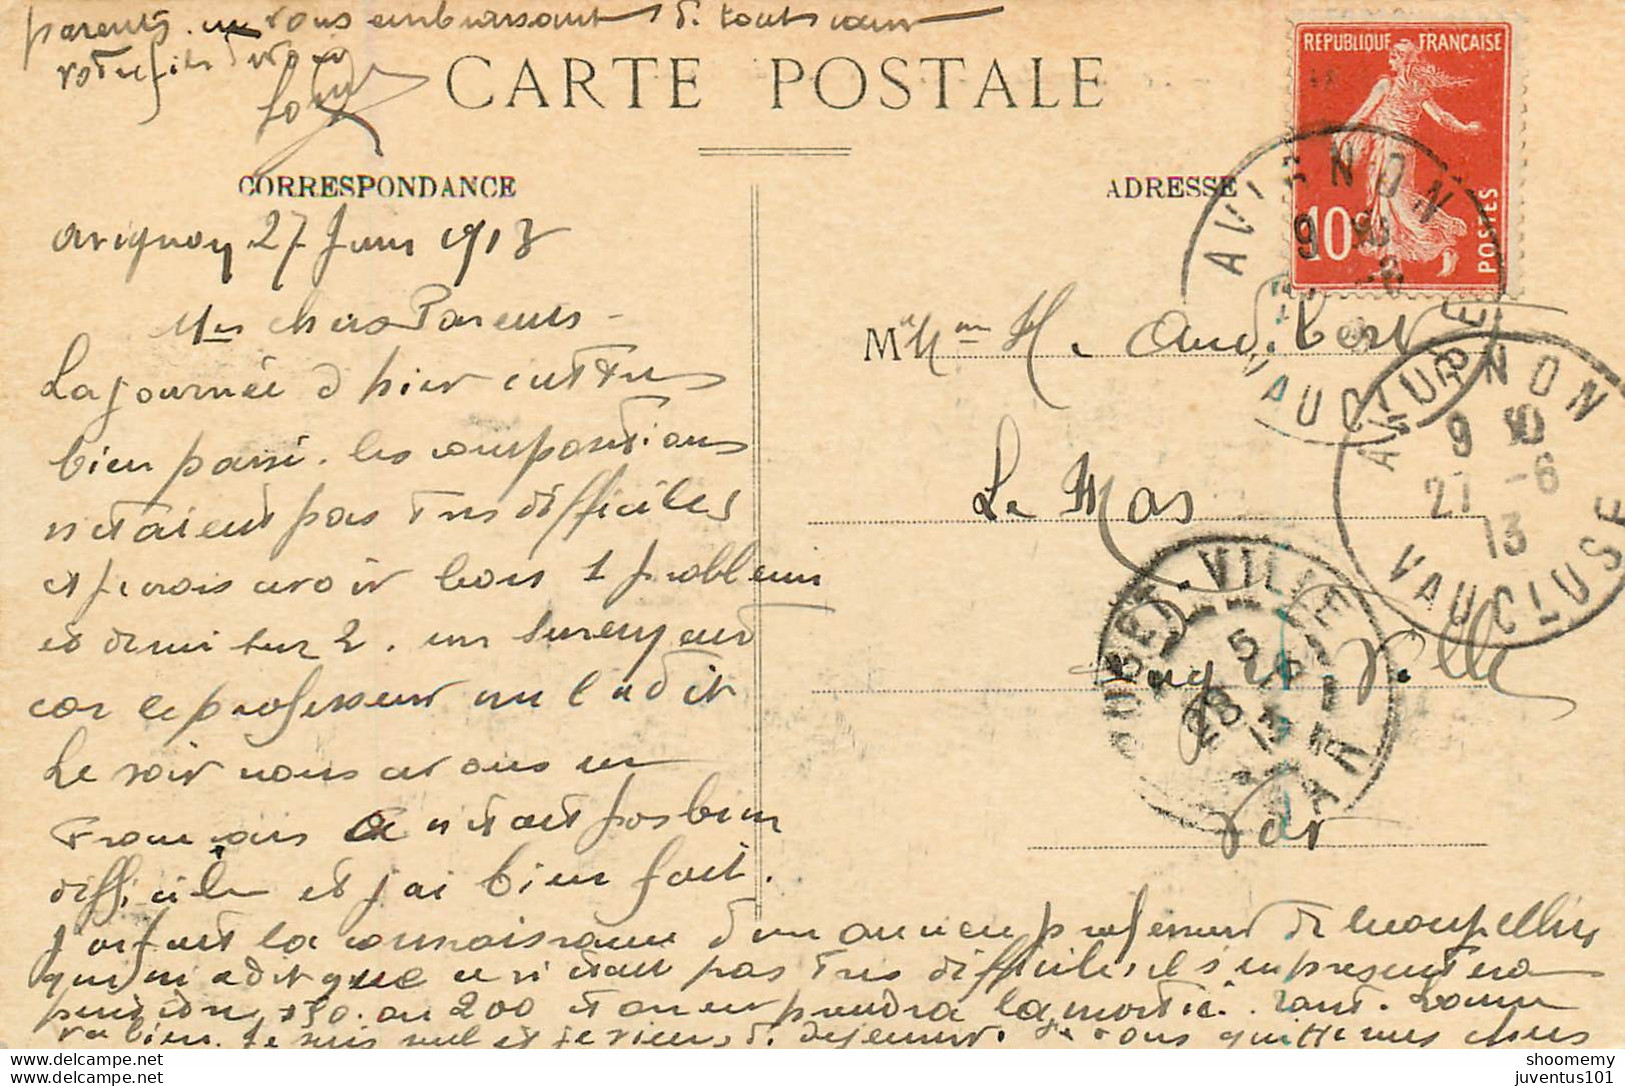 parents en vous embrassant de tout cœur
votre fils dévoué
Louis
CARTE POSTALE
CORRESPONDANCE
ADRESSE
REPUBLIQUE FRANÇAISE
10c
POSTES
AVIGNON
9 10
VAUCLUSE
AVIGNON
9 10
27 -6
13
VAUCLUSE
Avignon 27 Juin 1913
Mes chers Parents
La journée d'hier est très
bien passé. les compositions
n'étaient pas très difficiles
et je crois avoir bon 1 problème
et demi sur 2. en
car le professeur nous l'a dit
Le soir nous avons eu
Français n'était pas bien
difficile et j'ai bien fait.
J'ai fait la connaissance d'un ancien professeur de Montpellier
qui m'a dit que ce n'était pas très difficile, il s'en présentera
150 ou 200 et on en prendra la moitié. Santé bonne
va bien. Je suis seul et je viens de déjeuner. Je vous quitte mes chers
M
et Mme H. Audibert
Le Mas
Puget-Ville
Var
PUGET-VILLE
5
28 -6
13
VAR
shoomemy
juventus101